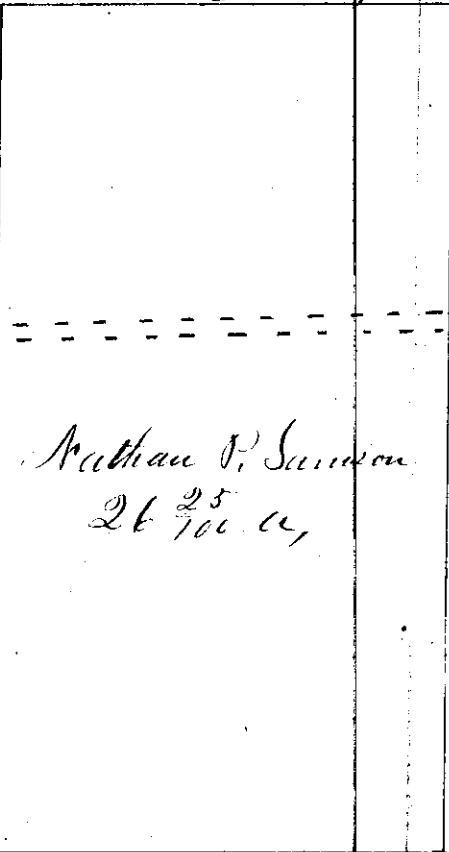 Nathan P. Samson
26 25/100 a,